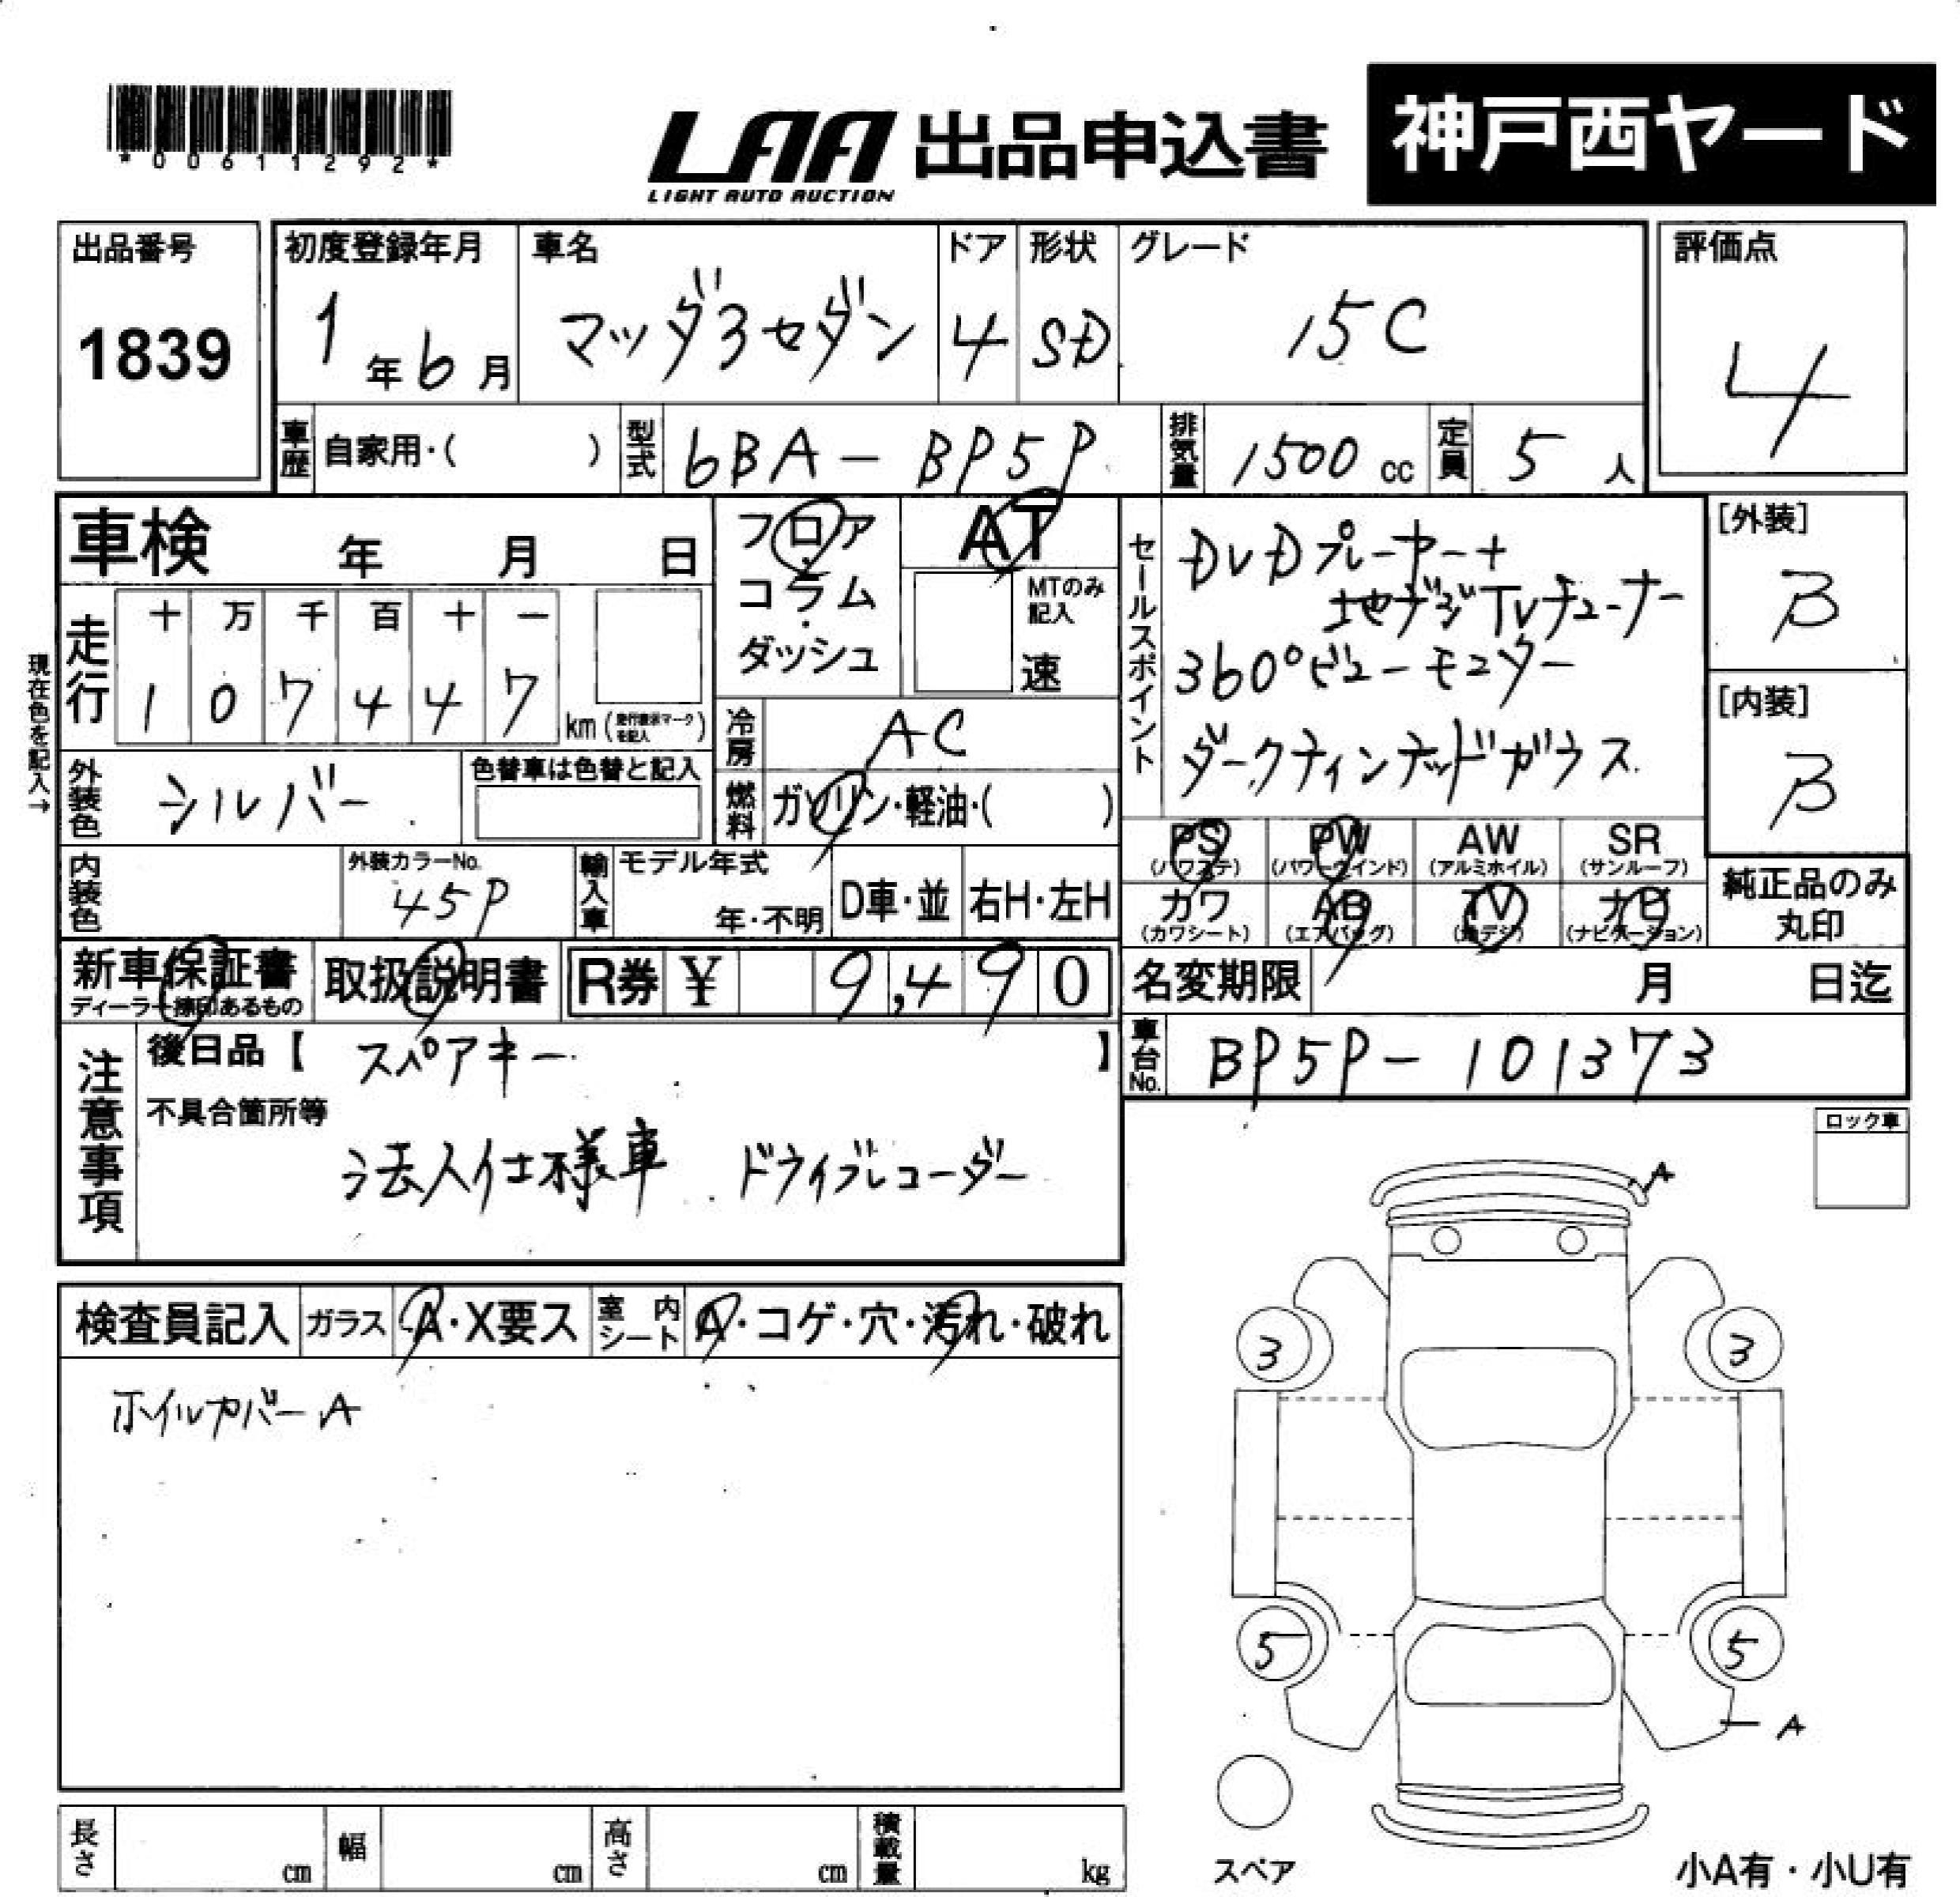 *00611292*
LAA 出品申込書 神戸西ヤード
LIGHT AUTO AUCTION
出品番号
1839
初度登録年月
1年6月
車名
マツダ3セダン
ドア
4
形状
SD
グレード
15C
評価点
4
車歴 自家用・( )
型式 6BA-BP5P
排気量 1500cc
定員 5人
車検 年 月 日
現在色を記入→
走行
十 万 千 百 十 一
1 0 7 4 4 7 km (走行表示マークを記入)
外装色 シルバー
色替車は色替と記入
内装色
外装カラーNo.
45P
輸入車 モデル年式
年・不明
D車・並
右H・左H
フロア
コラム
ダッシュ
AT
MTのみ記入
速
冷房 AC
燃料 ガソリン・軽油・( )
セールスポイント
DVDプレーヤー+
地デジTVチューナー
360°ビューモニター
ダークティンテッドガラス
[外装]
B
[内装]
B
PS (パワステ)
PW (パワーウインド)
AW (アルミホイル)
SR (サンルーフ)
カワ (カワシート)
AB (エアバッグ)
TV (地デジ)
ナビ (ナビゲーション)
純正品のみ
丸印
新車保証書
ディーラー捺印あるもの
取扱説明書
R券 ¥ 9,490
名変期限 月 日迄
車台No. BP5P-101373
注意事項
後日品【 スペアキー 】
不具合箇所等
法人仕様車 ドライブレコーダー
ロック車
検査員記入
ガラス A・X要ス
室内シート A・コゲ・穴・汚れ・破れ
ホイルカバーA
A
3 3
5 5
A
スペア
小A有・小U有
長さ cm
幅 cm
高さ cm
積載量 kg